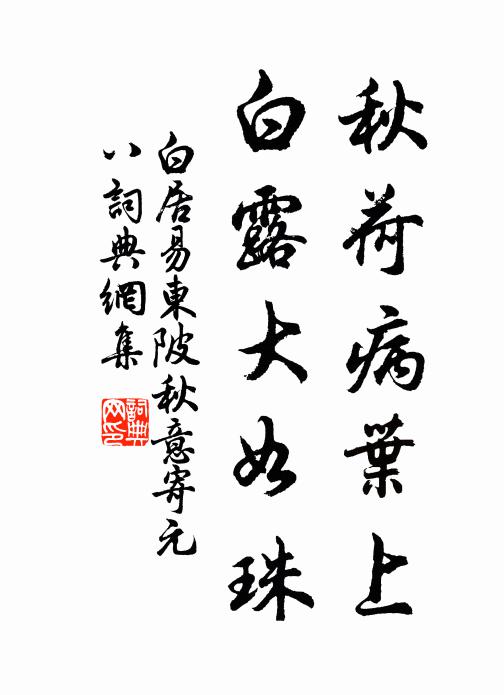 秋荷病葉上
白露大如珠
白居易東陂秋意寄元
八詞典網集
詞典
网印